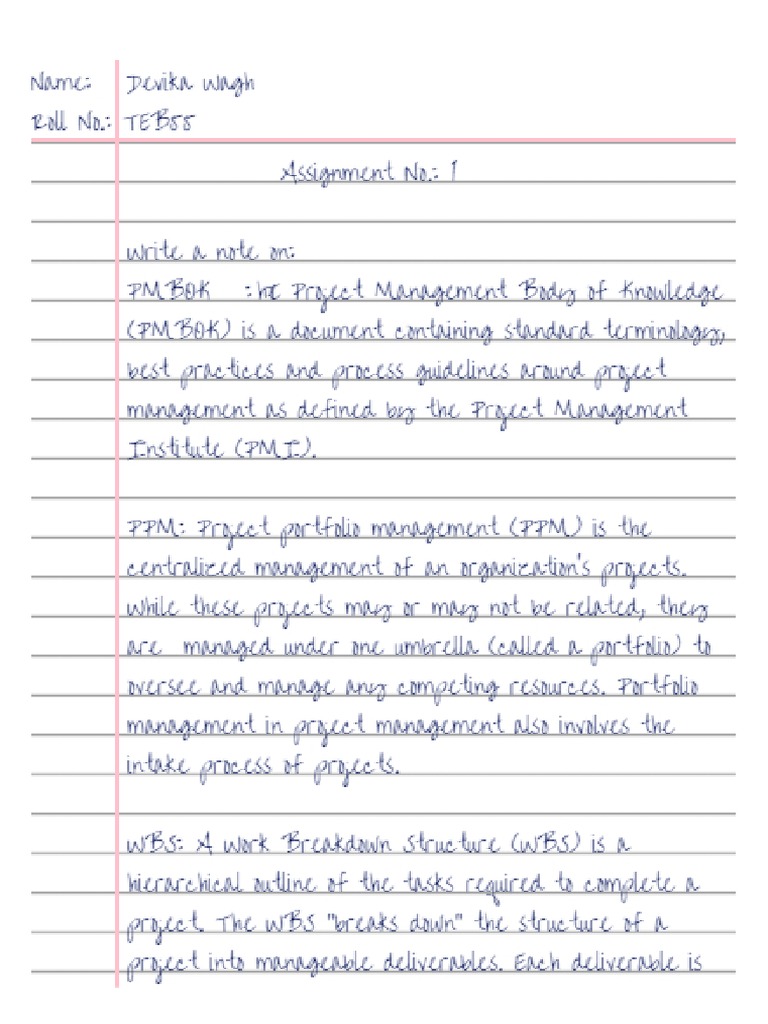 Name: Devika Wagh
Roll No.: TEB55
Assignment No.: 1
Write a note on:
PMBOK :he Project Management Body of Knowledge
(PMBOK) is a document containing standard terminology,
best practices and process guidelines around project
management as defined by the Project Management
Institute (PMI).
PPM: Project portfolio management (PPM) is the
centralized management of an organization's projects.
While these projects may or may not be related, they
are managed under one umbrella (called a portfolio) to
oversee and manage any competing resources. Portfolio
management in project management also involves the
intake process of projects.
WBS: A Work Breakdown Structure (WBS) is a
hierarchical outline of the tasks required to complete a
project. The WBS "breaks down" the structure of a
project into manageable deliverables. Each deliverable is